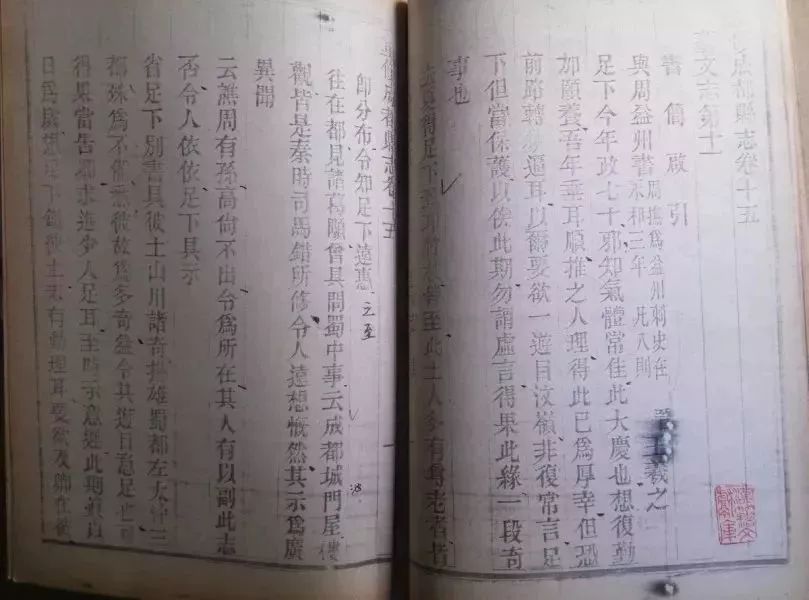 成都縣志卷十五
藝文志第十一
書簡啟引
與周益州書 周撫為益州刺史在永和三年 凡八則 晉王羲之
足下今年政七十邪知氣體常佳此大慶也想復勤
加頤養吾年垂耳順推之人理得此已為厚幸但恐
前路轉欲逼耳以爾要欲一遊目汶嶺非復常言足
下但當保護以俟此期勿謂虛言得果此緣一段奇
事也
去夏得足下致邛竹杖皆至此士人多有尊老者皆
成都縣志卷十五
即分布令知足下遠惠之至
往在都見諸葛顒曾具問蜀中事云成都城門屋樓
觀皆是秦時司馬錯所修令人遠想慨然其示為廣
異聞
云譙周有孫高尚不出今為所在其人有以副此志
否令人依依足下具示
省足下別書具彼土山川諸奇揚雄蜀都左太沖三
都殊為不備悉彼故為多奇益令其遊目意足也可
得果當告卿求迎少人足耳至時示意遲此期真以
日為歲想足下鎮彼土未有動理耳要欲及卿在彼